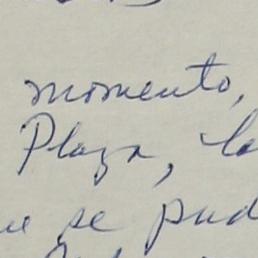 momento,
Plaza, la
se pud